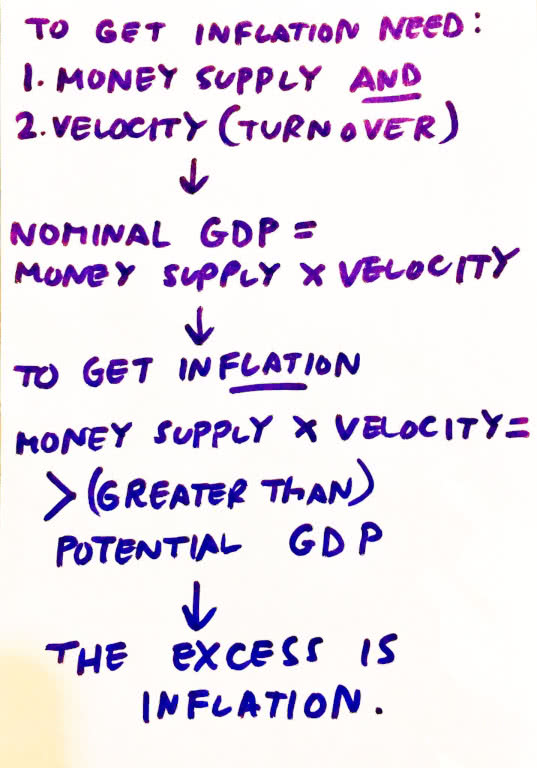 TO GET INFLATION NEED:
1. MONEY SUPPLY AND
2. VELOCITY (TURNOVER)
↓
NOMINAL GDP =
MONEY SUPPLY X VELOCITY
↓
TO GET INFLATION
MONEY SUPPLY X VELOCITY=
> (GREATER THAN)
POTENTIAL GDP
↓
THE EXCESS IS
INFLATION.